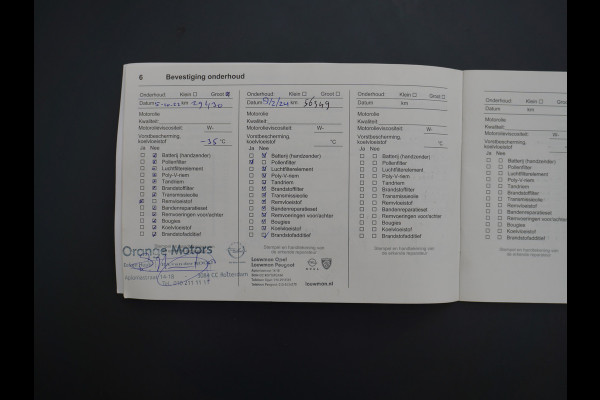 6 Bevestiging onderhoud
Onderhoud: Klein Groot
Datum 5-10-22 km 29430
Motorolie
Kwaliteit:
Motorolieviscositeit: W-
Vorstbescherming,
koelvloeistof -35 °C
Ja Nee
Batterij (handzender)
Pollenfilter
Luchtfilterelement
Poly-V-riem
Tandriem
Brandstoffilter
Transmissieolie
Remvloeistof
Bandenreparatieset
Remvoeringen voor/achter
Bougies
Koelvloeistof
Brandstofadditief
Orange Motors
3084 CC Rotterdam
Onderhoud: Klein Groot
Datum 9/2/24 km 56549
Motorolie
Kwaliteit:
Motorolieviscositeit: W-
Vorstbescherming,
koelvloeistof °C
Ja Nee
Batterij (handzender)
Pollenfilter
Luchtfilterelement
Poly-V-riem
Tandriem
Brandstoffilter
Transmissieolie
Remvloeistof
Bandenreparatieset
Remvoeringen voor/achter
Bougies
Koelvloeistof
Brandstofadditief
Stempel en handtekening van
de erkende reparateur
Loewman Opel
Loewman Peugeot
loewman.nl
Onderhoud: Klein Groot
Datum km
Motorolie
Kwaliteit:
Motorolieviscositeit: W-
Vorstbescherming,
koelvloeistof °C
Ja Nee
Batterij (handzender)
Pollenfilter
Luchtfilterelement
Poly-V-riem
Tandriem
Brandstoffilter
Transmissieolie
Remvloeistof
Bandenreparatieset
Remvoeringen voor/achter
Bougies
Koelvloeistof
Brandstofadditief
Stempel en handtekening van
de erkende reparateur
Onderhoud: Klein
Datum km
Motorolie
Kwaliteit:
Motorolieviscositeit: W-
Vorstbescherming,
koelvloeistof
Ja Nee
Batterij (handzender)
Pollenfilter
Luchtfilterelement
Poly-V-riem
Tandriem
Brandstoffilter
Transmissieolie
Remvloeistof
Bandenreparatieset
Remvoeringen voor/achter
Bougies
Koelvloeistof
Brandstofadditief
Stempel en handtekening van
de erkende reparateur